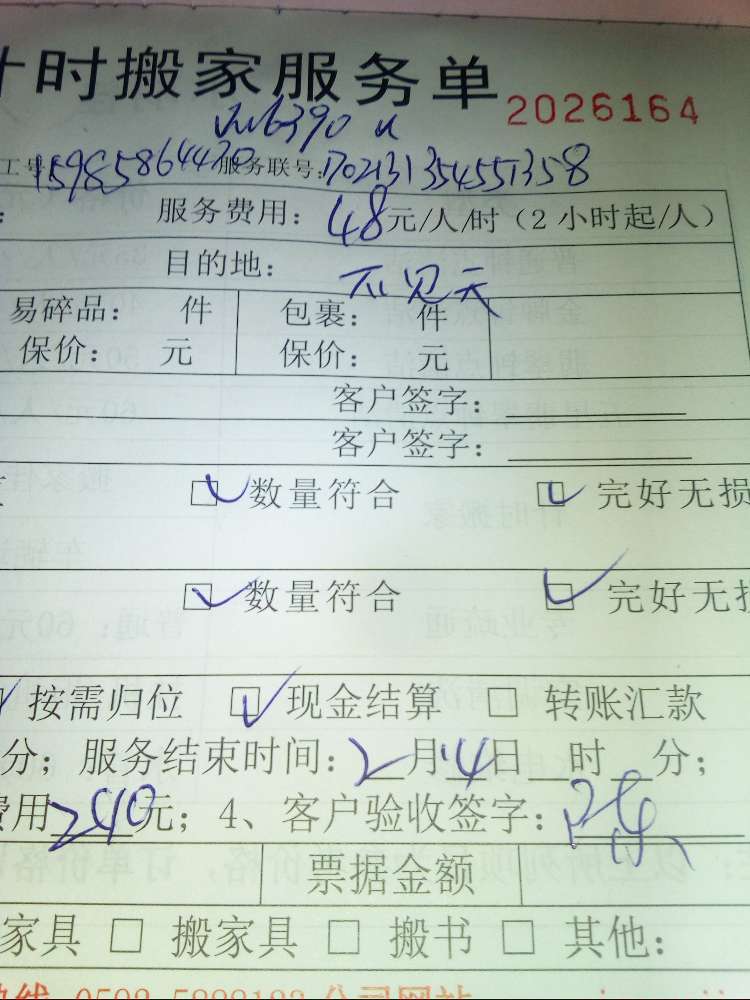 计时搬家服务单 2026164
工号 15985864420 服务联号: 1702131354551358
服务费用: 48元/人/时（2小时起/人）
目的地: 不见天
易碎品: 件 包裹: 件
保价: 元 保价: 元
客户签字:
客户签字:
数量符合 完好无损
数量符合 完好无损
按需归位 现金结算 转账汇款
分；服务结束时间: 2月14日 时 分；
费用240元；4、客户验收签字:
票据金额
家具 □ 搬家具 □ 搬书 □ 其他: